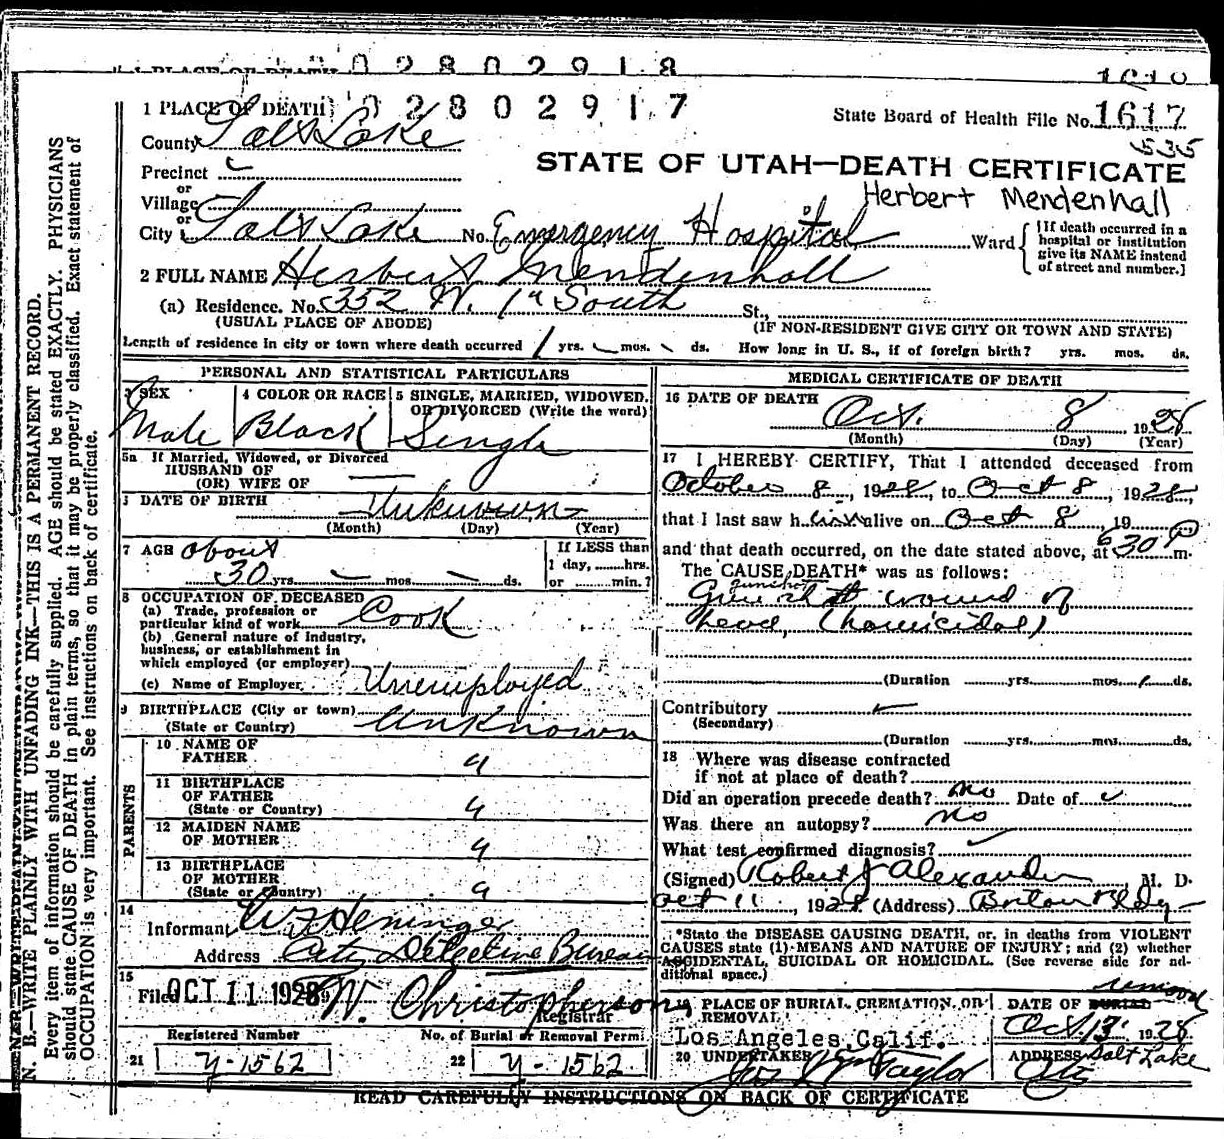 1 PLACE OF DEATH 02802918 1618
1 PLACE OF DEATH 02802917 State Board of Health File No. 1617
County Salt Lake 535
STATE OF UTAH—DEATH CERTIFICATE
Precinct
or
Village
Herbert Mendenhall
or
City Salt Lake No. Emergency Hospital Ward
[If death occurred in a
hospital or institution
give its NAME instead
of street and number.]
2 FULL NAME Herbert Mendenhall
(a) Residence. No. 352 W. 1st South St.,
(USUAL PLACE OF ABODE) (IF NON-RESIDENT GIVE CITY OR TOWN AND STATE)
Length of residence in city or town where death occurred 1 yrs. mos. ds. How long in U. S., if of foreign birth? yrs. mos. ds.
PERSONAL AND STATISTICAL PARTICULARS
3 SEX 4 COLOR OR RACE 5 SINGLE, MARRIED, WIDOWED,
OR DIVORCED (Write the word)
Male Black Single
5a If Married, Widowed, or Divorced
HUSBAND OF
(OR) WIFE OF
DATE OF BIRTH Unknown
(Month) (Day) (Year)
7 AGE about If LESS than
1 day, hrs.
30 yrs. mos. ds. or min.?
8 OCCUPATION OF DECEASED
(a) Trade, profession or
particular kind of work Cook
(b) General nature of Industry,
business, or establishment in
which employed (or employer)
(c) Name of Employer Unemployed
9 BIRTHPLACE (City or town)
(State or Country) Unknown
PARENTS
10 NAME OF
FATHER "
11 BIRTHPLACE
OF FATHER "
(State or Country)
12 MAIDEN NAME
OF MOTHER "
13 BIRTHPLACE
OF MOTHER "
(State or Country)
14
Informant W F Heninger
Address City Detective Bureau
15
Filed OCT 11 1928 W. Christopherson
Registrar
Registered Number No. of Burial or Removal Permi
21 y-1562 22 y-1562
MEDICAL CERTIFICATE OF DEATH
16 DATE OF DEATH Oct. 8 1928
(Month) (Day) (Year)
17 I HEREBY CERTIFY, That I attended deceased from
October 8, 1928, to Oct 8, 1928,
that I last saw him alive on Oct 8, 19
and that death occurred, on the date stated above, at 6 30 P m.
The CAUSE DEATH* was as follows:
gunshot
Gun shot wound of
head, (homicidal)
(Duration yrs. mos. ds.
Contributory
(Secondary)
(Duration yrs. mos. ds.
18 Where was disease contracted
if not at place of death?
Did an operation precede death? no Date of
Was there an autopsy? no
What test confirmed diagnosis?
(Signed) Robert J Alexander M. D.
Oct 11, 1928 (Address) Boston Bldg
*State the DISEASE CAUSING DEATH, or, in deaths from VIOLENT
CAUSES state (1) MEANS AND NATURE OF INJURY; and (2) whether
ACCIDENTAL, SUICIDAL OR HOMICIDAL. (See reverse side for ad-
ditional space.)
19 PLACE OF BURIAL, CREMATION, OR
REMOVAL
Los Angeles, Calif.
DATE OF BURIAL removal
Oct. 13 1928
20 UNDERTAKER Jos Wm Taylor
ADDRESS Salt Lake
City
READ CAREFULLY INSTRUCTIONS ON BACK OF CERTIFICATE
N. B.—WRITE PLAINLY WITH UNFADING INK—THIS IS A PERMANENT RECORD.
Every item of information should be carefully supplied. AGE should be stated EXACTLY. PHYSICIANS
should state CAUSE OF DEATH in plain terms, so that it may be properly classified. Exact statement of
OCCUPATION is very important. See instructions on back of certificate.